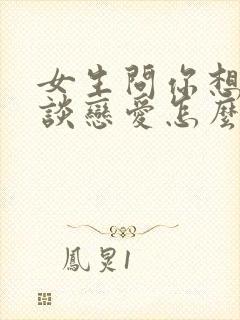 女生問你想
談戀愛怎麼
鳳炅1